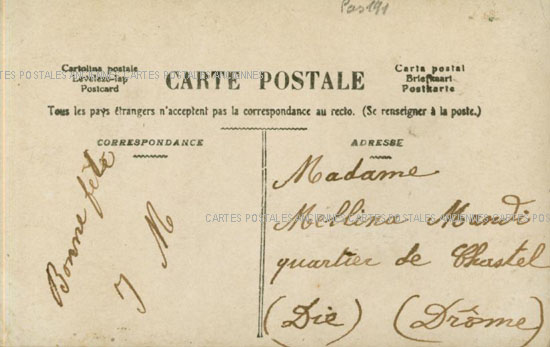 Pas191
Cartolina postale
Levelezo-lap
Postcard
CARTE POSTALE
Carta postal
Briefkaart
Postkarte
CARTES POSTALES ANCIENNES CARTES POSTALES ANCIENNES
Tous les pays étrangers n'acceptent pas la correspondance au recto. (Se renseigner à la poste.)
CORRESPONDANCE
Bonne fête
J M
ADRESSE
Madame
Mellina Mandi
quartier de Chastel
(Die) (Drôme)
CARTES POSTALES ANCIENNES CARTES POSTALES ANCIENNES